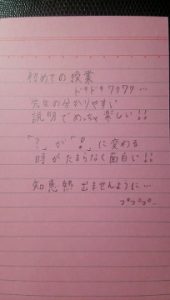 初めての授業
ドキドキワクワク…
先生の分かりやすい
説明でめっちゃ楽しい!!
「?」が「!」に変わる
時がたまらなく面白い!!
知恵熱出ませんように…